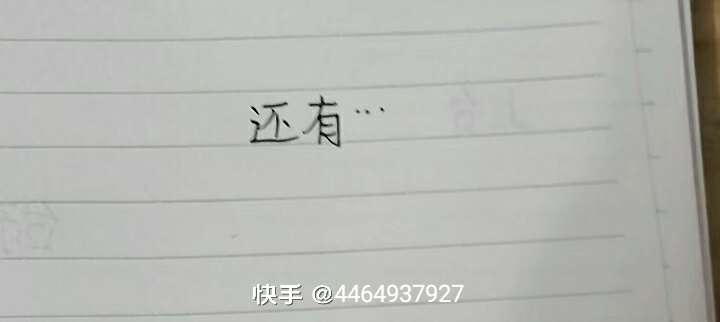 还有…
快手 @4464937927